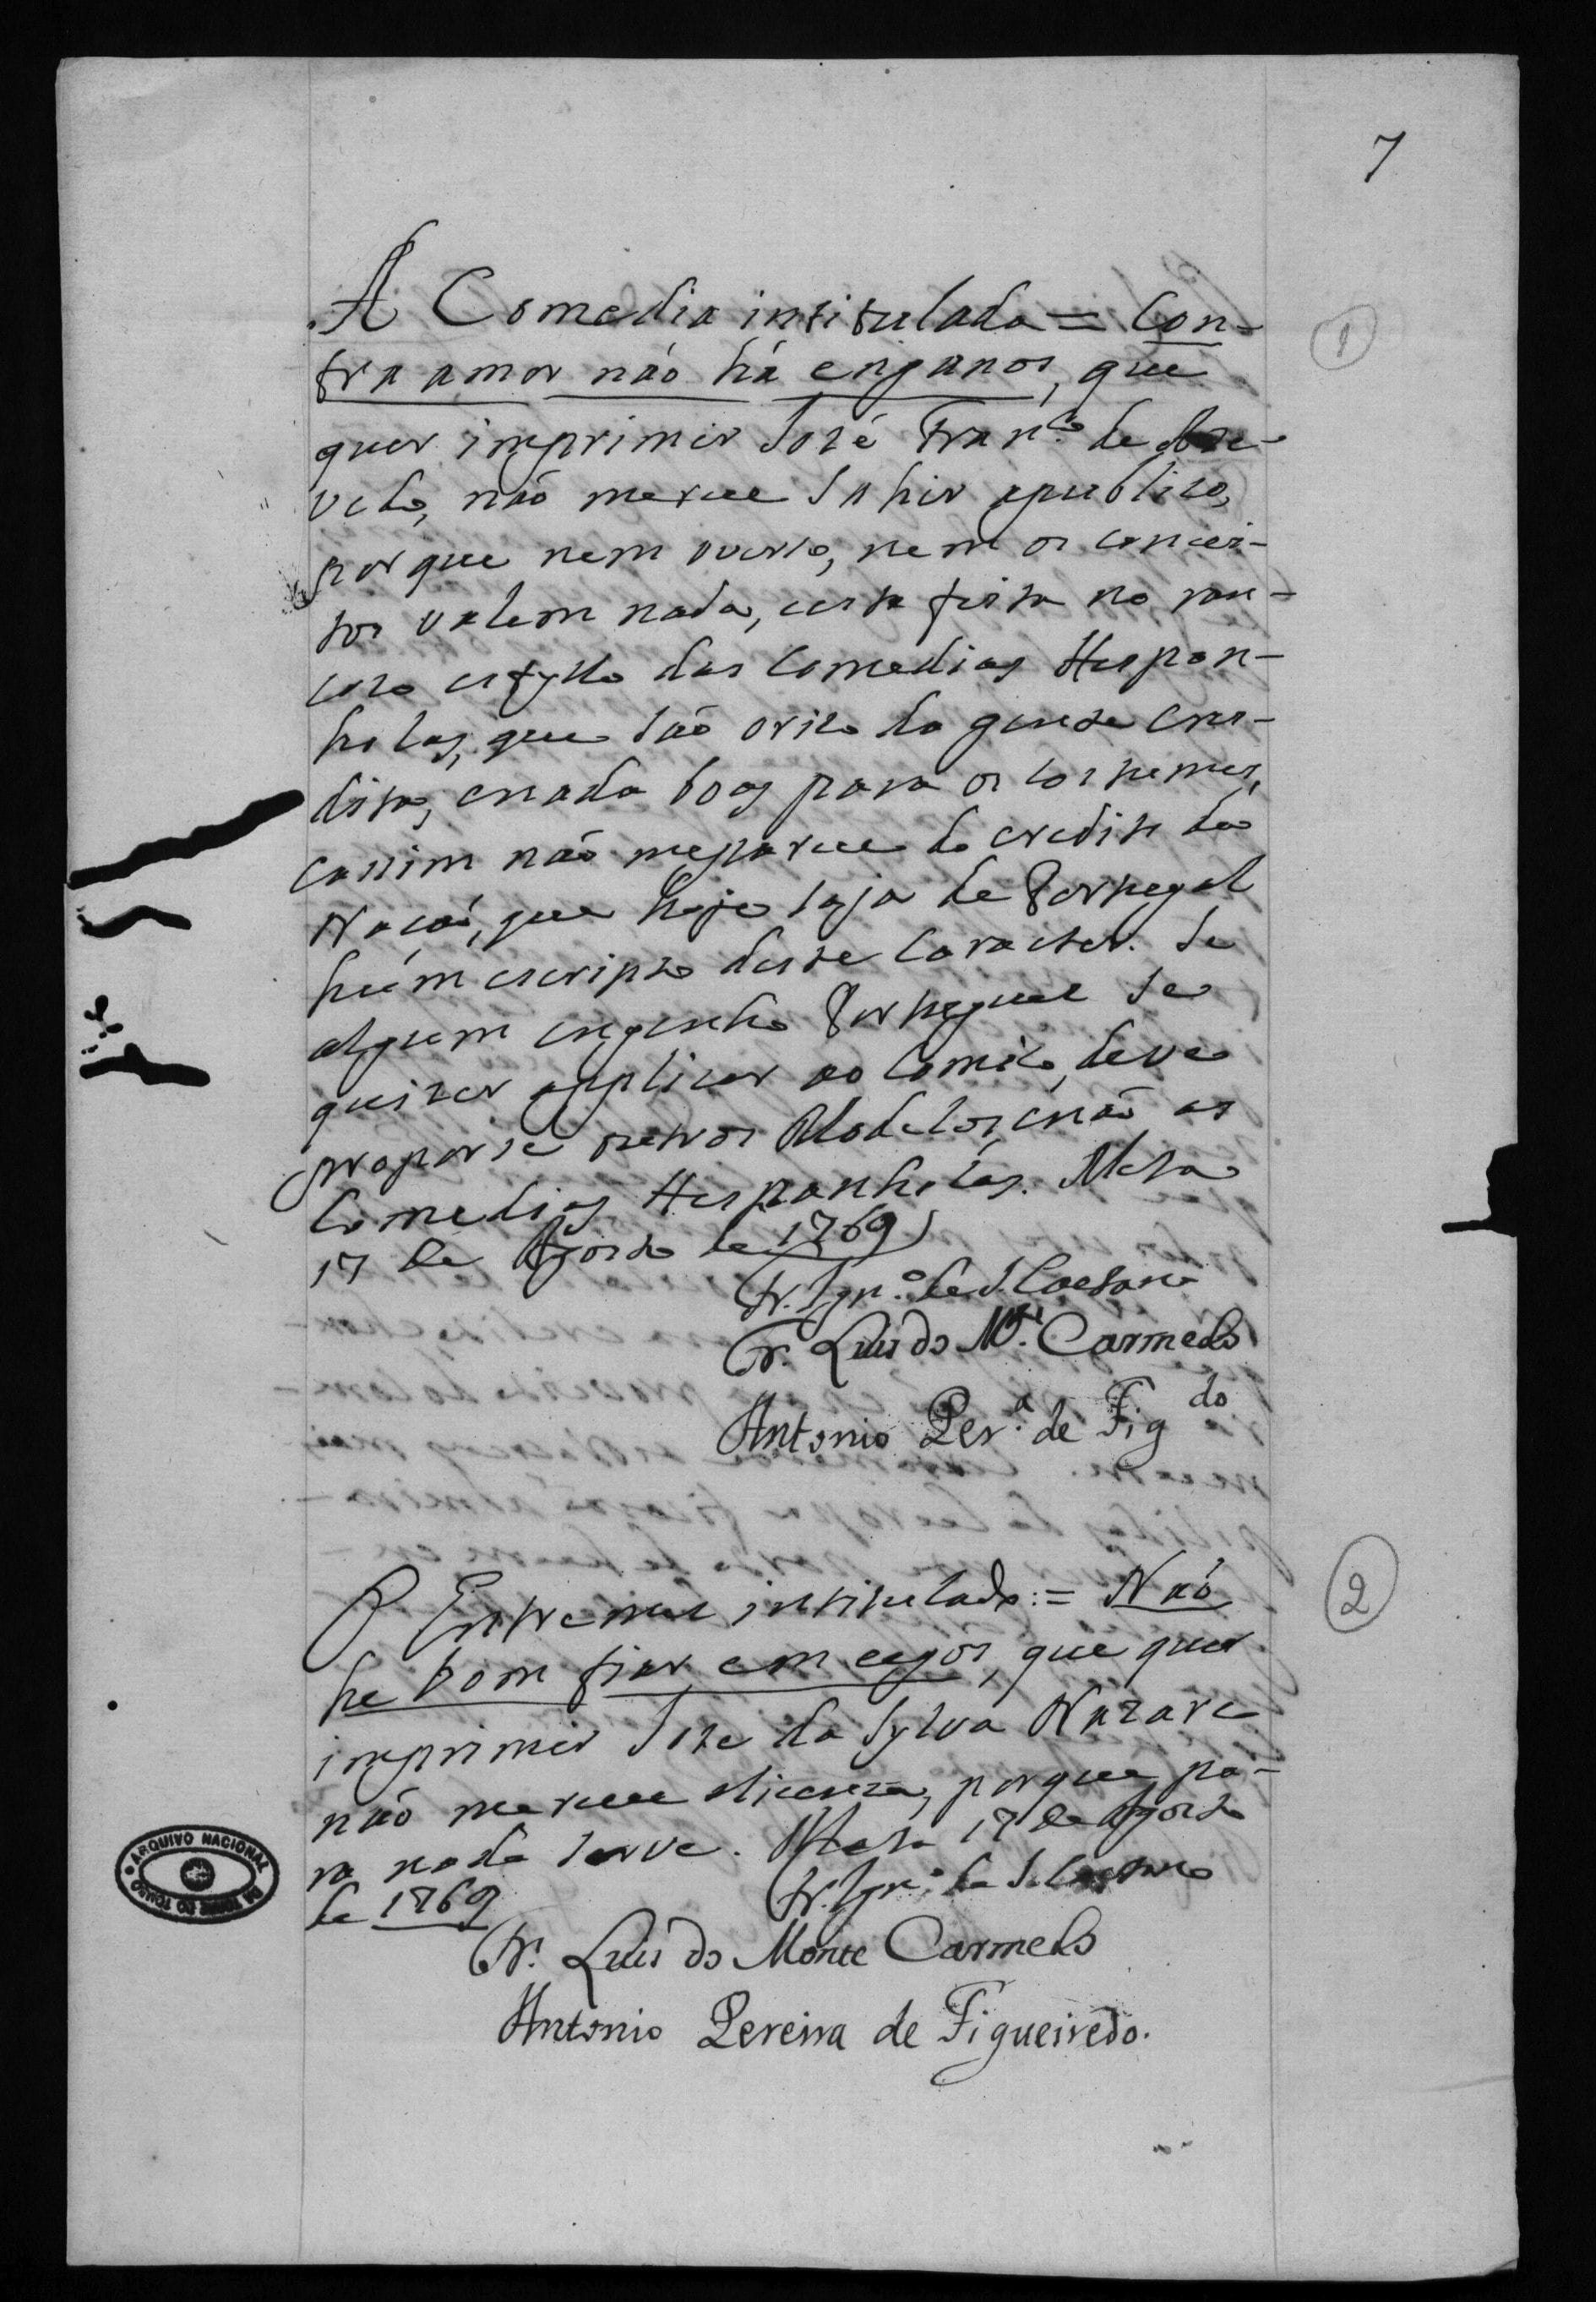 7
A Comedia intitulada = Con-
tra amor não há enganos, que
quer imprimir José Fran.co de Aze-
vedo, não merece sahir apublico,
porque nem overso, nem os concei-
tos valem nada, eesta feita no
estyllo das Comedias Hespan-
holas, que são oriso da gente eru-
dita, enada boas para os costumes,
eassim não meparece do credito da
Nação, que hoje saja de Portugal
hum escripto deste caracter. Se
algum engenho Portuguez se
quizer applicar ao Comico, deve
proporse outros Modelos, enão as
Comedias Hespanholas. Mesa
17 de Agosto de 1769
Fr. Ign.o de S. Caetano
Fr. Luis do M.te Carmelo
Antonio Per.a de Fig.do
1
O Entremez intitulado: = Não
he bom fiar em cegos, que quer
imprimir Jose da Sylva Nazare
não merece alicença, porque pa-
ra nada serve. Mesa 17 de Agosto
de 1769
Fr. Ign.o de S. Caetano
Fr. Luis do Monte Carmelo
Antonio Pereira de Figueiredo.
2
ARQUIVO NACIONAL DA TORRE DO TOMBO